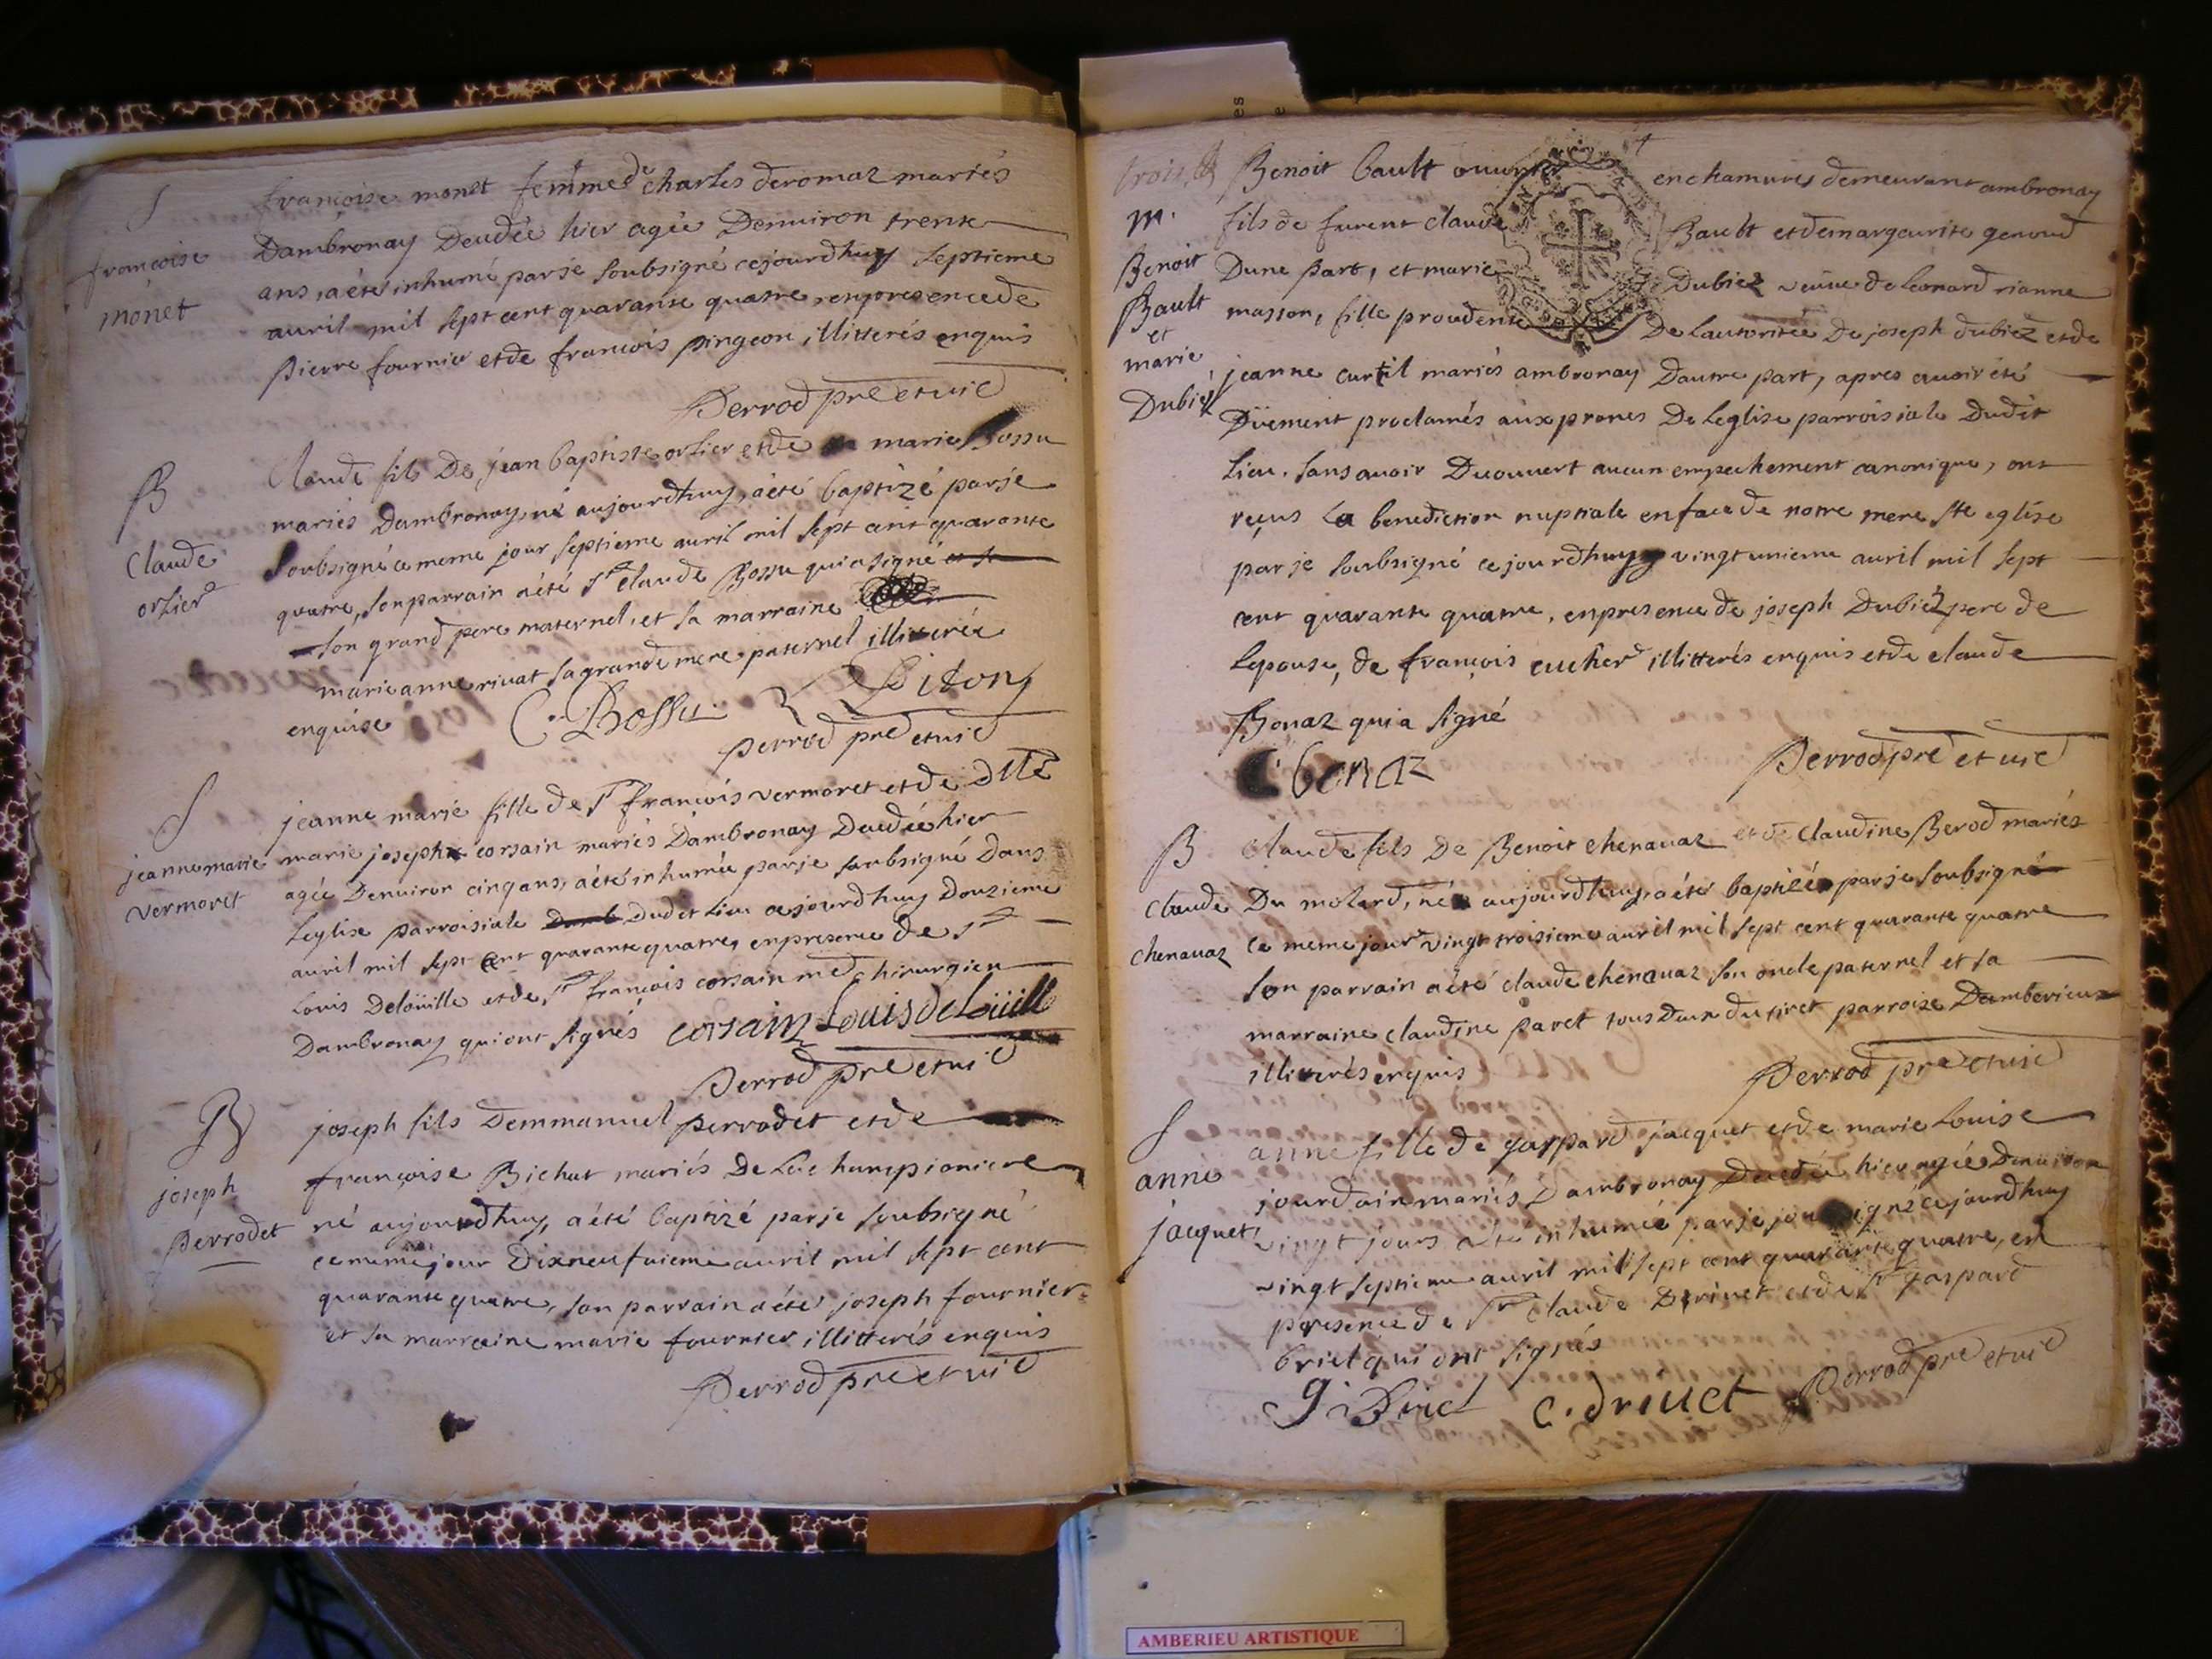 S
francoise
monet
francoise monet femme de charles deromaz mariés
Dambronay Decedée hier agée Denuiron trente
ans, a été inhumé par je soubsigné cejourdhuy septieme
auril mil sept cent quarante quatre, en presence de
pierre fournier et de francois pingeon, illitterés enquis
Perrod pre et vic
B
Claude
orsier
Claude fils De jean baptiste orsier et de marie Bossu
mariés Dambronay, né aujourdhuy, a été baptizé par je
soubsigné ce meme jour septieme auril mil sept cent quarante
quatre, son parrain a été sr claude Bossu qui a signé
son grand pere maternel, et sa marraine
marieanne riuat sa grande mere paternel illiterée
enquise
C. Bossu
perrod pre et vic
S
jeanne marie
vermoret
jeanne marie fille de sr francois vermoret et de dlle
marie joseph corsain mariés Dambronay Decedée hier
agée Denuiron cinq ans, a été inhumée par je soubsigné Dans
leglise parroisiale Dudet lieu cejourdhuy Douzieme
auril mil sept cent quarante quatre, en presence de sr
Louis Deloüille et de sr francois corsain me chirurgien
Dambronay qui ont signés corsain Louis deloüille
Perrod pre et vic
B
joseph
perrodet
joseph fils Demmanuel perrodet et de
françoise Bichat mariés De La championiere
né aujourdhuy, a été baptizé par je soubsigné
ce meme jour Dixneufuieme auril mil sept cent
quarante quatre, son parrain a été joseph fournier
et sa marraine marie fournier illitterés enquis
Perrod pre et vic
trois
M.
Benoit
Bault
et
marie
Dubiez
Benoit bault ouurier en chamures demeurant ambronay
fils de furent claude Bault et de margeurite genoud
Dune part, et marie Dubiez veuue de Leonard rianne
masson, fille proudente De Lautoritée De joseph dubiez et de
jeanne curtil mariés ambronay Dautre part, apres auoir été
Düement proclamés aux prones De Leglise parroisiale Dudit
lieu. sans auoir Decouvert aucun empechement canonique, ont
reçus La benediction nuptiale en face de notre mere ste eglise
par je soubsigné cejourdhuy vingt unieme auril mil sept
cent quarante quatre, en presence de joseph Dubiez pere de
lepouse, de françois cucher illitterés enquis et de claude
Bonaz qui a signé
C bonaz
Perrod pre et vic
B
Claude
chenauaz
Claude fils De Benoit chenauaz et de claudine Berod mariés
Du molard, né aujourdhuy, a été baptizé par je soubsigné
ce meme jour vingt troisieme auril mil sept cent quarante quatre
son parrain a été claude chenauaz son oncle paternel et sa
marraine claudine paret tous deux du tiret parroise Damberieux
illiterés enquis
Perrod pre et vic
S
anne
jacquet
anne fille de gaspard jacquet et de marie Louise
jourdain mariés Dambronay Decedée hier agée Denuiron
vingt jours a été inhumée par je soubsigné cejourdhuy
vingt septieme auril mil sept cent quarante quatre, en
presence de sr claude Driuet et de sr gaspard
briel qui ont signés
g. Briel c. driuet Perrod pre et vic
AMBERIEU ARTISTIQUE